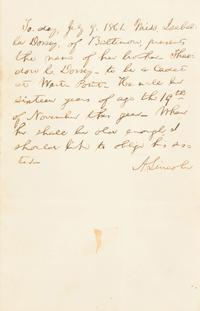 To-day, July 9, 1861. Miss, Isabel-
la Dorsey, of Baltimore, presents
the name of her brother Theo-
dore C. Dorsey - to be a Cadet
at West Point. He will be
sixteen years of age the 19th
of November this year - When
he shall be old enough, I
should like to oblige his sis-
ter.
A. Lincoln